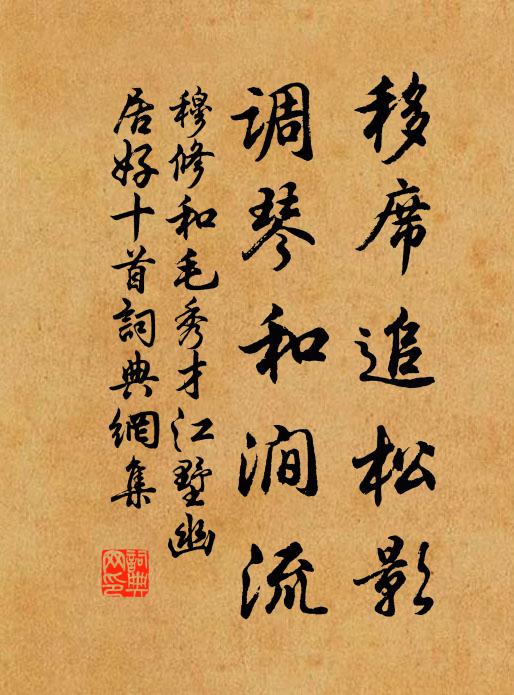 移席追松影
调琴和涧流
穆修和毛秀才江墅幽
居好十首詞典網集
詞典网印